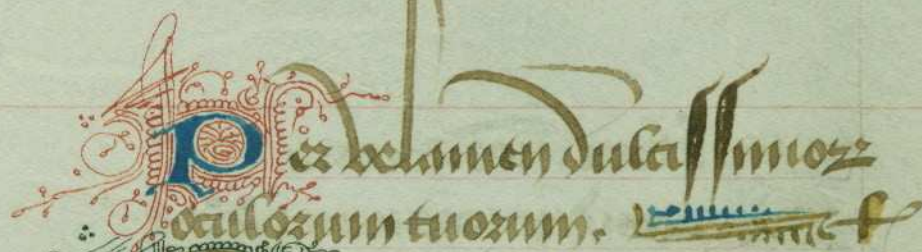 Per velamen dulcissimoꝝ
oculorum tuorum.